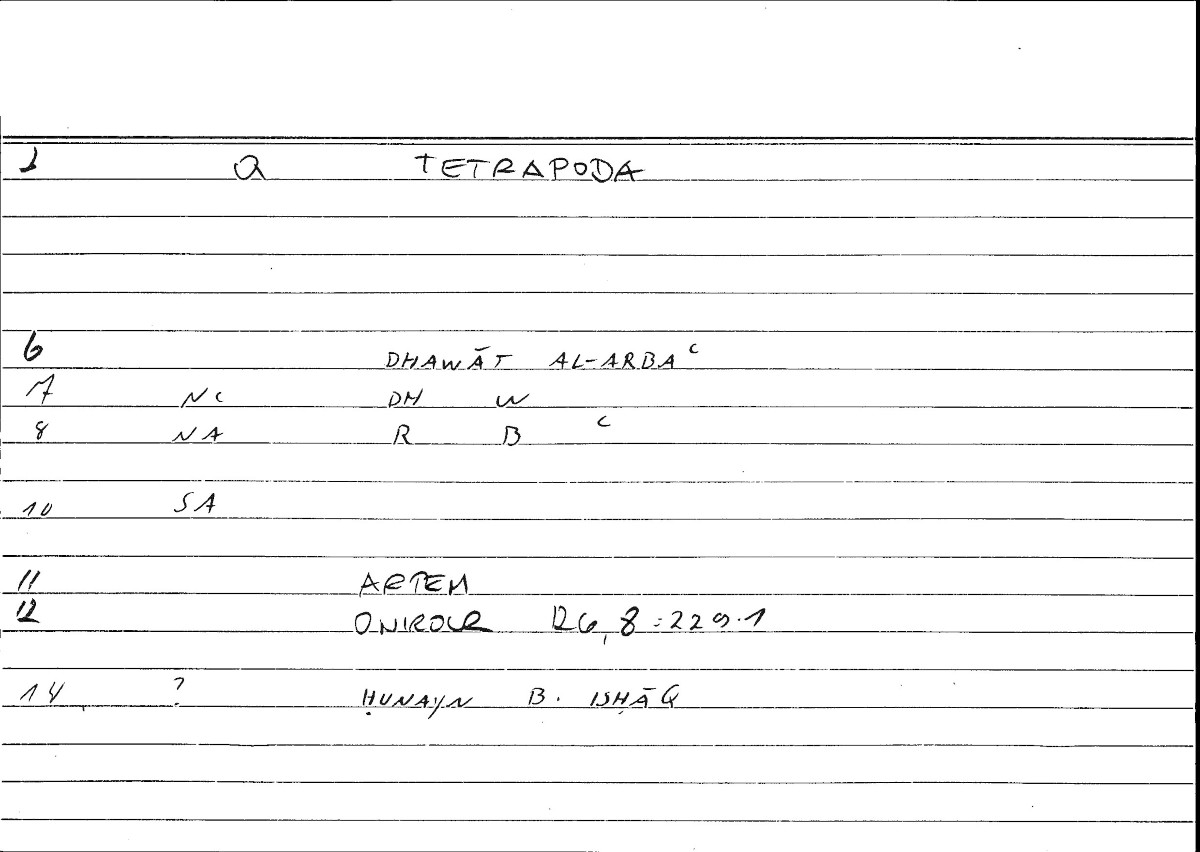 1 Q TETRAPODA
6 DHAWĀT AL-ARBAʿ
7 NC DH W
8 NA R B ʿ
10 SA
11 ARTEM
12 ONIROCR 126,8:229.1
14 ? ḤUNAYN B. ISḤĀQ